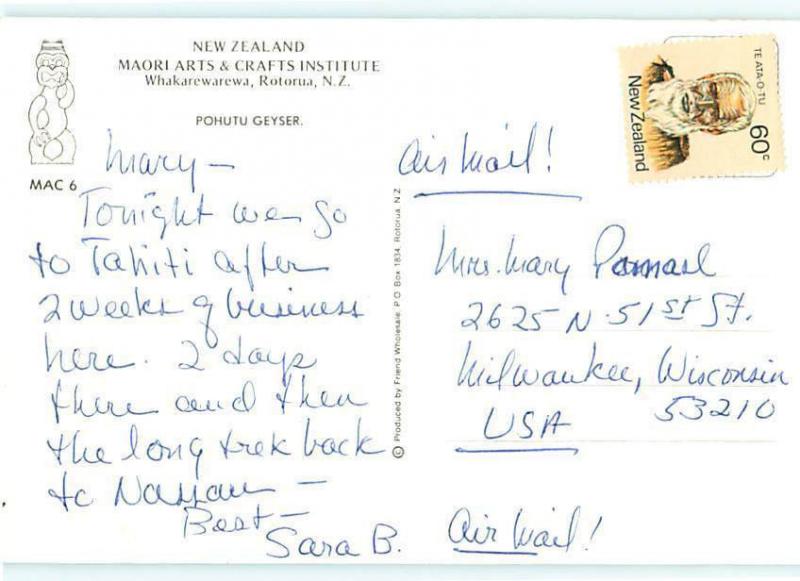 NEW ZEALAND
MAORI ARTS & CRAFTS INSTITUTE
Whakarewarewa, Rotorua, N.Z.
POHUTU GEYSER.
MAC 6
Mary –
Tonight we go
to Tahiti after
2 weeks of business
here. 2 days
there and then
the long trek back
to Nassau –
Best –
Sara B.
© Produced by Friend Wholesale. P.O Box 1834, Rotorua N.Z
TE ATA-O-TU
60c
New Zealand
Air Mail!
Mrs. Mary
2625 N. 51st St.
Milwaukee, Wisconsin
53210
USA
Air Mail!